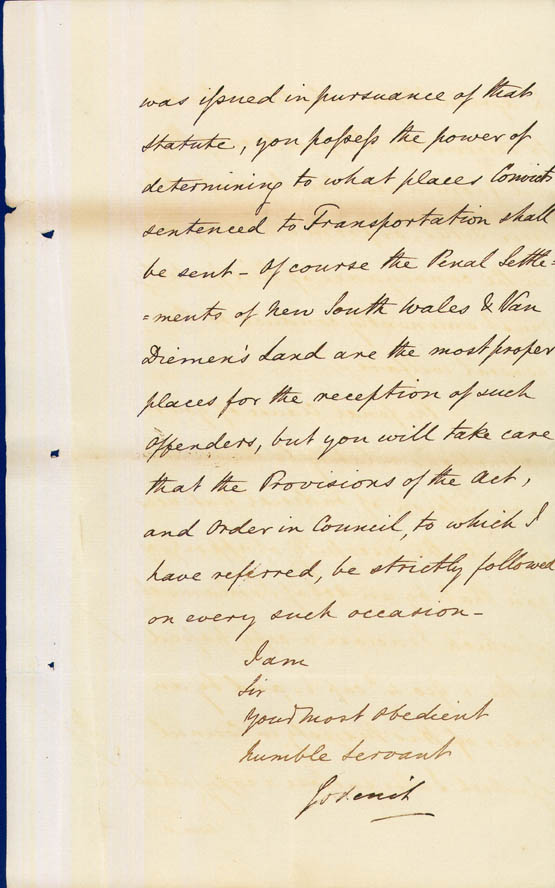 was issued in pursuance of that
statute, you possess the power of
determining to what places Convicts
sentenced to Transportation shall
be sent - Of course the Penal Settle=
=ments of New South Wales & Van
Diemen's Land are the most proper
places for the reception of such
Offenders, but you will take care
that the Provisions of the Act,
and Order in Council, to which I
have referred, be strictly followed
on every such occasion -
I am
Sir
Your most obedient
humble Servant